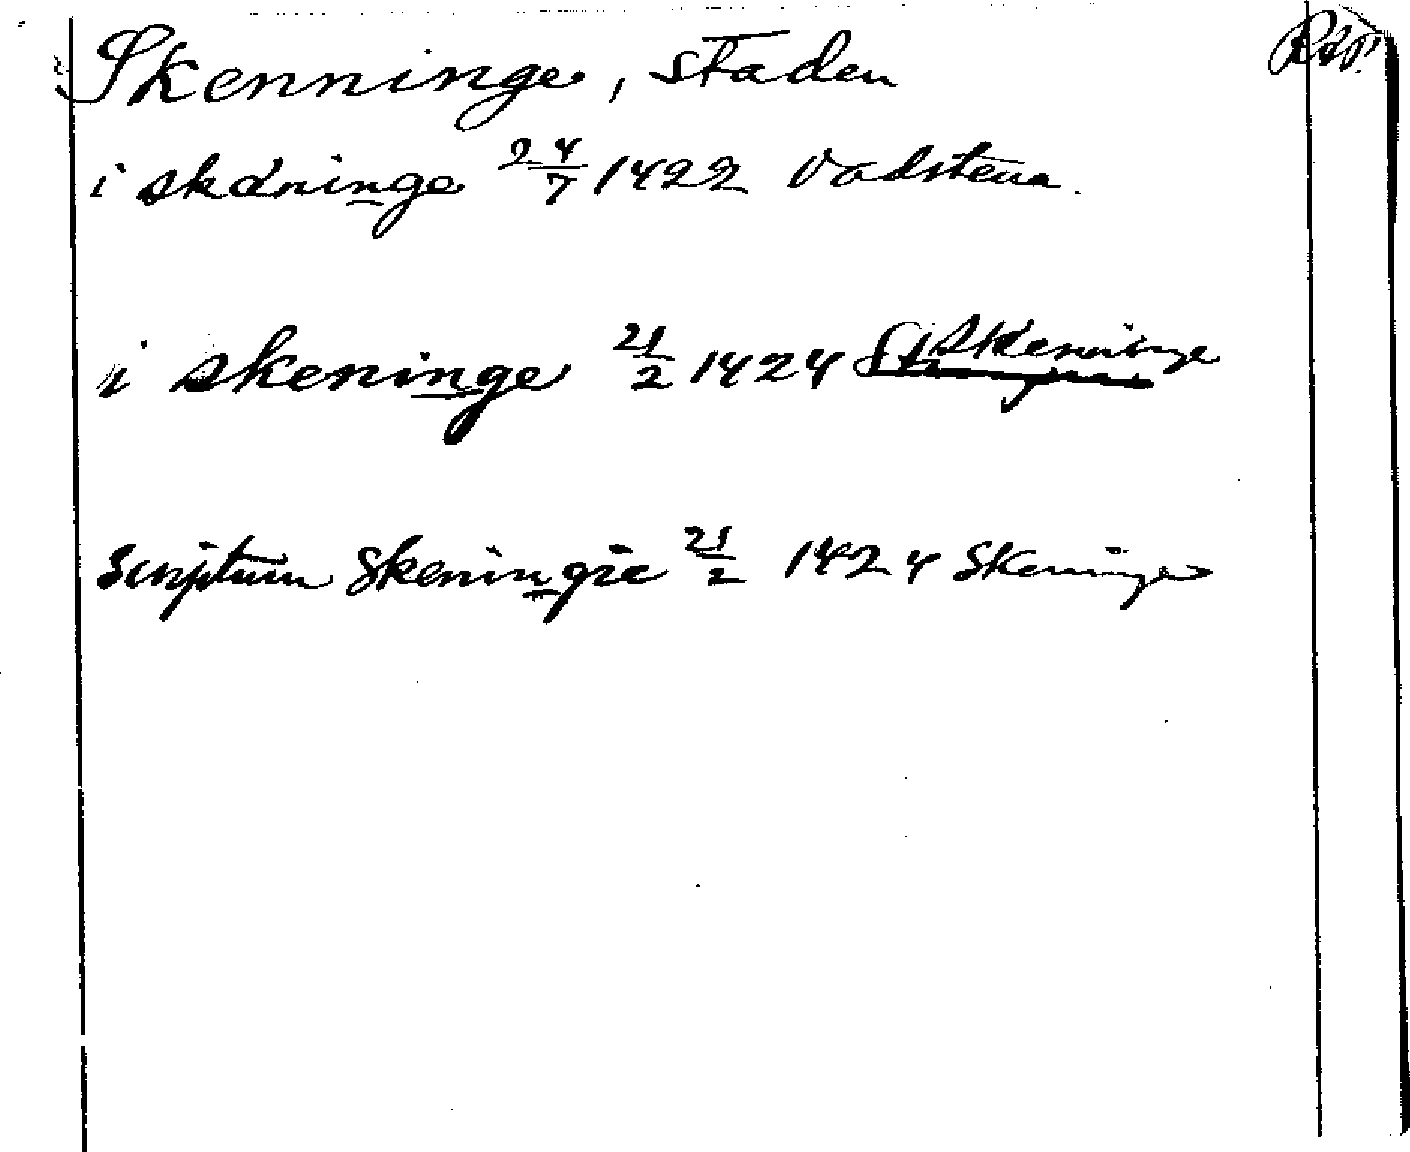 Skenninge, staden RAP.
i skäninge 24/7 1422 Vadstena.
i skeninge 21/2 1424 Skenninge
Scriptum Skeningie 21/2 1424 Skeninge